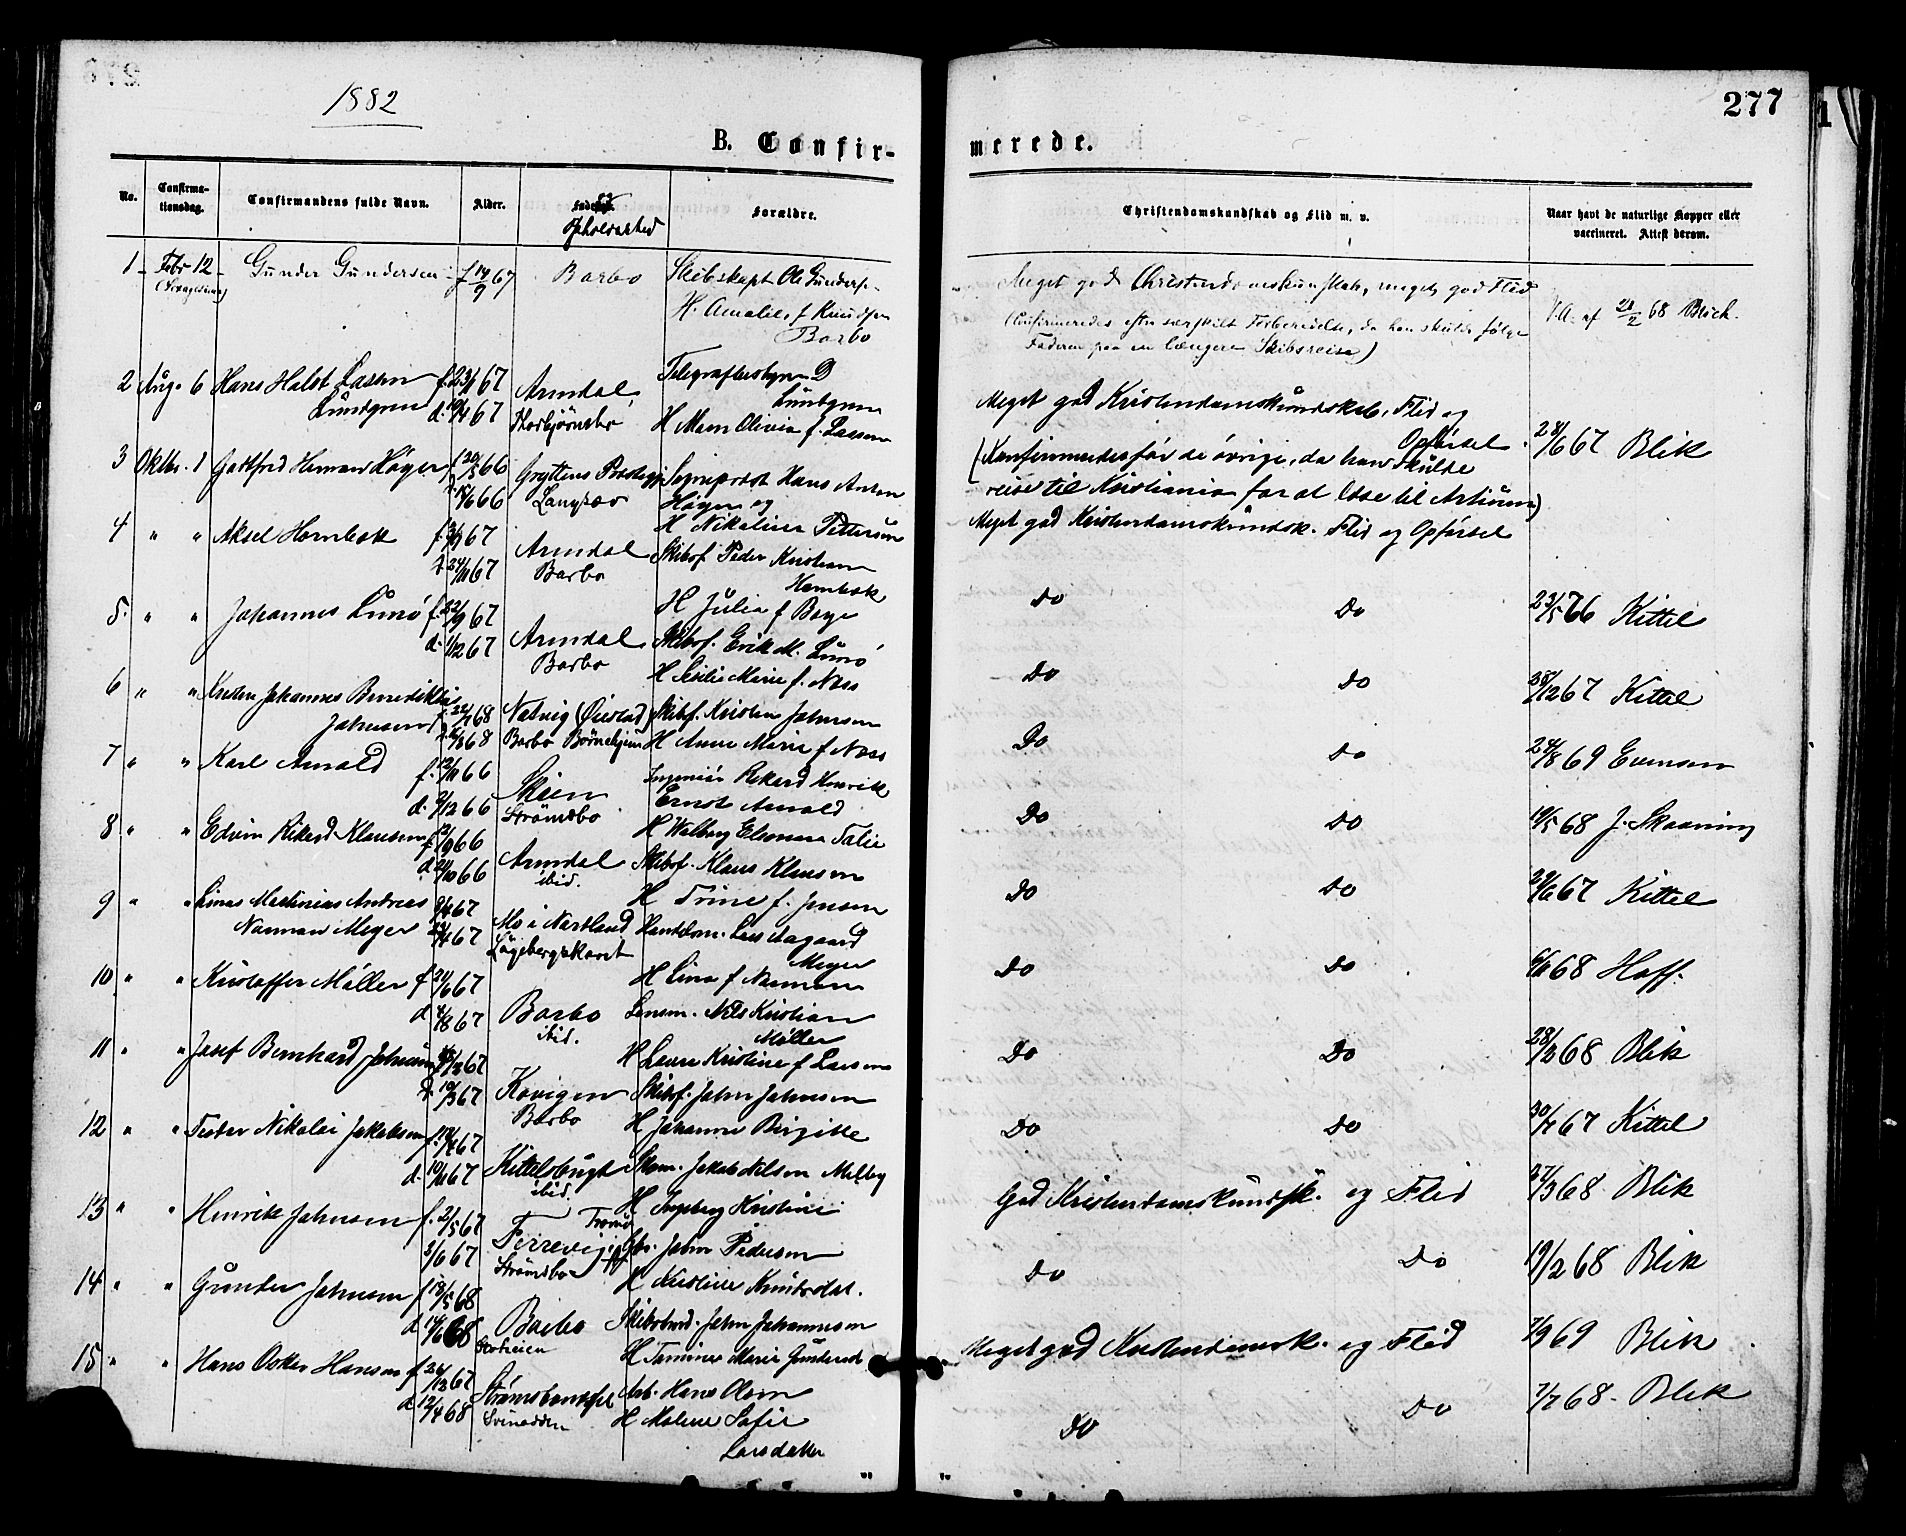 1882
277
B. Confir-
merede.
No.
Confirma-
tionsdag.
Confirmandens fulde Navn.
Alder.
Opholdssted
Forældre.
Christendomskundskab og Flid m. v.
Naar havt de naturlige Kopper eller
vaccineret. Attest derom.
1 Febr 12 Gunder Gundersen f 14/9 67 Barbo Skibskapt Ole Gunders.
H. Amalie f Knudsen
Barbo
Meget god Christendomskundskab, meget god Flid
(Confirmeredes efter særskilt Forberedelse, da han skulde følge
Faderen paa en længere Skibsreise)
V.A. af 23/2 68 Blich.
2 Aug. 6 Hans Halst Lassen f. 23/1 67 Arendal Telegrafbestyrer D
Lundgren d. 19/4 67 Lundgren
H Olivia f. Lassen
Meget god Kristendomskundskab, Flid og
Opførsel.
(Konfirmeredes før de øvrige, da han skulde
reise til Kristiania for at læse til Artium)
28/6 67 Blik
3 Oktbr. 1 Gottfred Herman Høyer f 20/5 66 Gryttens Sogneprest Hans Anton
18/6 66 Langsæv Høyer og
H Nikoline Pettersen
Meget god Kristendomskundsk. Flid og Opførsel
4 " " Aksel Hornbæk f. 67 Arendal Skibsf. Peder Kristian
67 Barbo Hornbæk
H Julia f Boye
Do Do
23/5 66 Kittel
5. " " Johannes Lunø f. 22/9 67 Arendal Skibsf. Erik M. Lunø
d. 1/12 67 Barbo H Sesilie Marie f. Næss
Do Do
28/12 67 Kittel
6 " " Johannes Benedikt
Johnsen 22/1 68 Natvig (Øiestad) Skibsf. Kristen Johnsen
68 Barbo Børnehjem H Anne Marie f Næss
Do Do
24/8 69 Evensen
7 " " Karl Arnold f. 12/11 66 Skien Ingeniør Rikard Henrik
d. 2/12 66 Strømsbo Ernst Arnold
H Walborg Elenora Talie
Do Do
19/5 68 J. Skaaning
8 " " Edvin Rikard Klausen f. 12/9 66 Arendal Skibsf. Klaus Klausen
d. 21/10 66 ibid. H Trine f. Jensen
Do Do
29/6 67 Kittel
9 " " Linus Martinius Andreas 9/4 67 Mo i Nordland Handelsm. Lars Aagaard
Norman Meyer 67 Meyer
H Lina f Norman
Do Do
68 Hoff.
10 " " Kristoffer Møller f 21/6 67 Barbo Lensm. Nils Kristian
d 4/8 67 ibid. Møller
H Laura Kristine f Larsen
Do Do
28/3 68 Blik
11 " " Josef Bernhard Johnsen 67 Skibsf. John Johnsen
10/3 67 Barbo H Johanne Birgitte
Do Do
30/7 67 Kittel
12 " " Teodor Nikolai Jakobsen f. 67 Kittelsbugt Skom. Jakob Nilsen Melby
d. 67 ibid. H Ingeborg Kristine
God Kristendomskundsk. og Flid
27/3 68 Blik
13 " " Henrik Johnsen f. 2/5 67 Tromø Gbr. John Pedersen
3/6 67 Strømsbo H Kristine Knudsdat.
Do Do
19/2 68 Blik
14 " " Gunder Johnsen f 13/5 68 Barbo John Johannesen
d 14/6 68 H Tomine Marie Gundersd
Meget god Kristendomsk. og Flid
7/9 69 Blik
15 " " Hans Oskar Hansen f 24/12 67 Arb. Hans Olsen
d 12/4 68 H Malene Sofie
Larsdatter
Do Do
7/7 68 - Blik